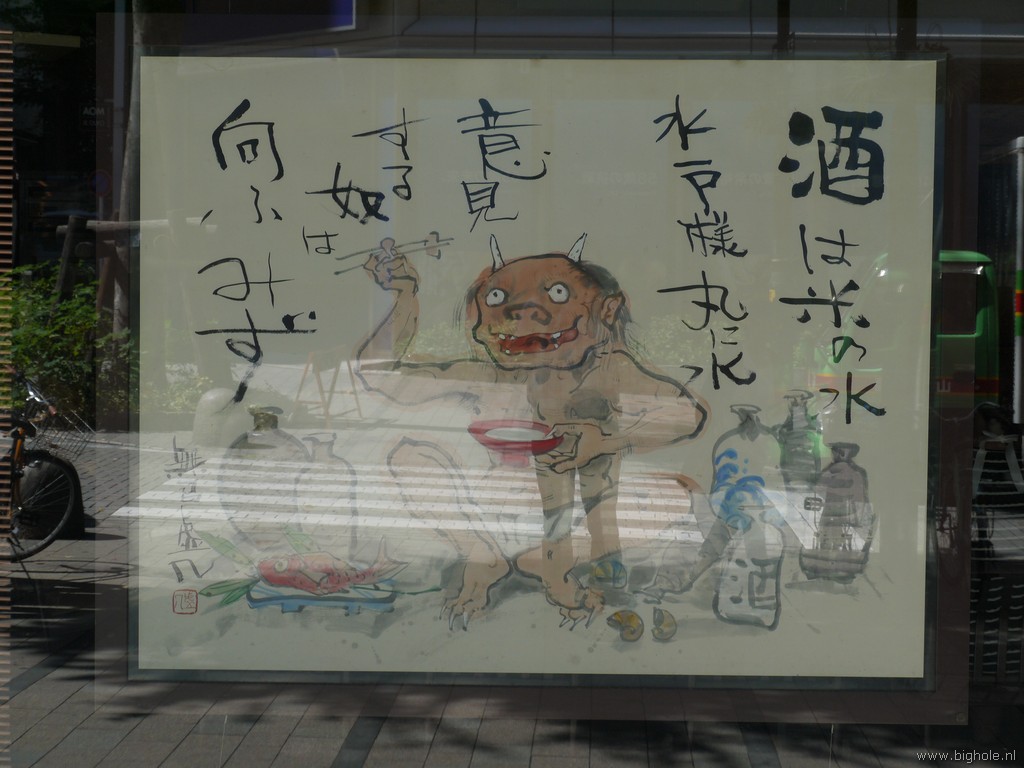 酒は米の水
水戸様丸に水
意見
する奴は
向ふみず
酒
www.bighole.nl